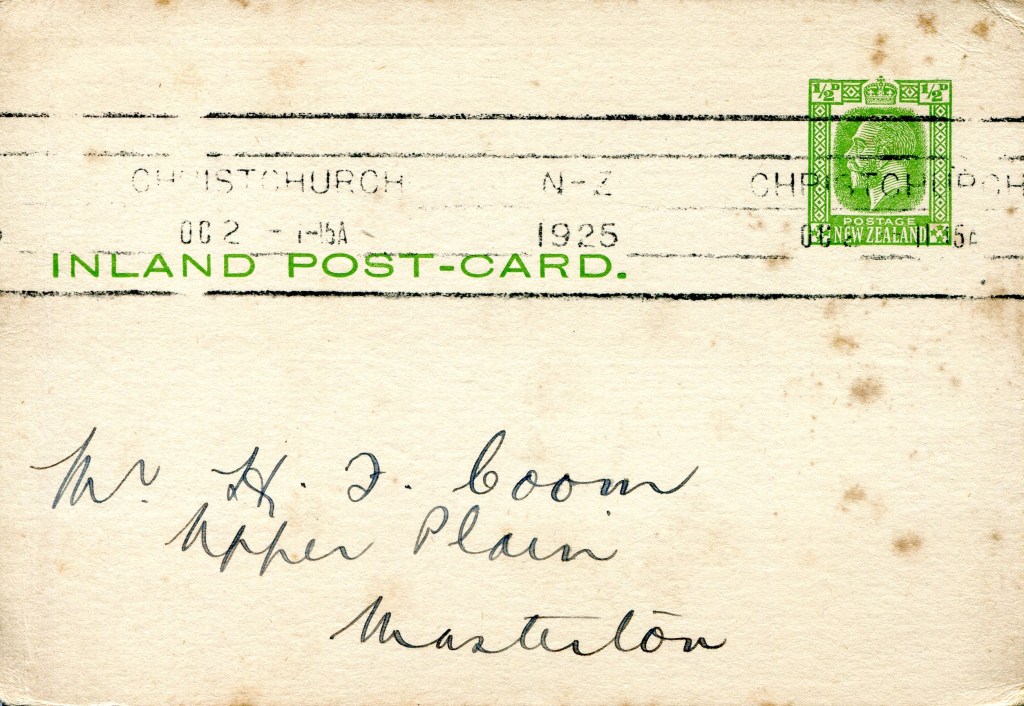 ½ᴰ ½ᴰ
CHRISTCHURCH N-Z CHRISTCHURCH
OC 2 1925 OC 2
POSTAGE
NEW ZEALAND
INLAND POST-CARD.
Mr. H. J. Coom
Upper Plain
Masterton